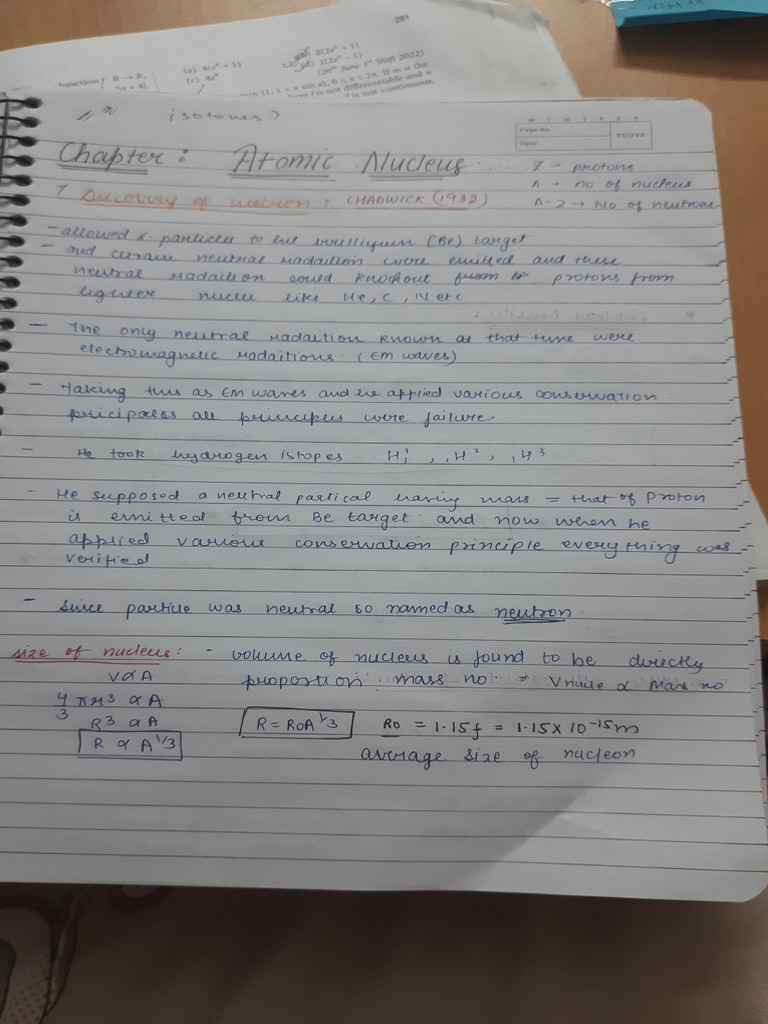 281
function f : R → R,
(a) 4(e⁴ + 1)
(c) 4e⁴
2(2e⁴ + 1)
2(2e⁴ − 1)
(26th June 1st Shift 2022)
f is not differentiable and n
f is not continuous,
isotones ?
M T W T F S S
Page No.:
Date:
YOUVA
Chapter : Atomic Nucleus
Z → protons
A → no of nucleus
A-Z → No of neutrons
Discovery of neutron : CHADWICK (1932)
- allowed α particles to hit brilliyum (Be) target
- and certain neutral radaition were emitted and these
neutral radaition could knockout from protons from
lighter nuclei like He, C, N etc
— The only neutral radaition known at that time were
electromagnetic radaitions (EM waves)
- Taking this as EM waves and he applied various conservation
pricipaless all principles were failure
- He took hydrogen istopes H¹₁ , ₁H² , ₁H³
- He supposed a neutral partical having mass = that of Proton
is emitted from Be target and now when he
applied various conservation principle everything was
verified
- Since particle was neutral so named as neutron
size of nucleus : - volume of nucleus is found to be directly
V∝A proportion mass no ⇒ Vnucle ∝ Mass no
4/3 πr3 ∝ A
R3 ∝ A R = R0A^1/3 R0 = 1.15f = 1.15 x 10⁻¹⁵m
R ∝ A^1/3 average size of nucleon